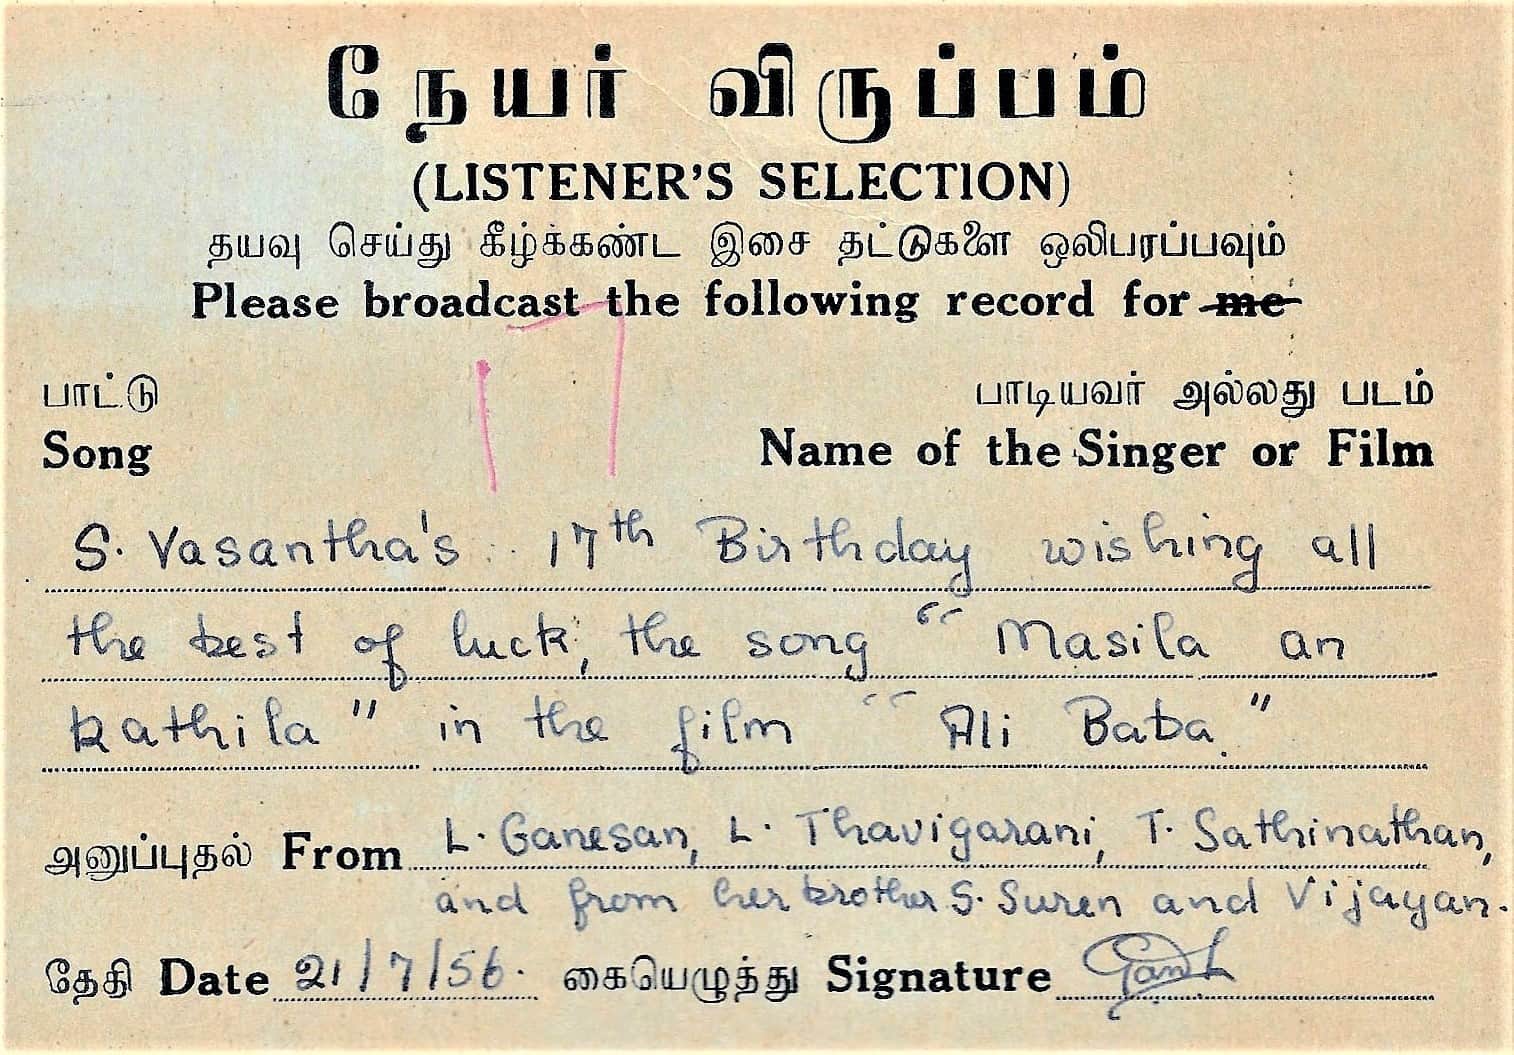 நேயர் விருப்பம்
(LISTENER'S SELECTION)
தயவு செய்து கீழ்க்கண்ட இசை தட்டுகளை ஒலிபரப்பவும்
Please broadcast the following record for me
17
பாட்டு பாடியவர் அல்லது படம்
Song Name of the Singer or Film
S. Vasantha's 17th Birthday wishing all
the best of luck, the song "Masila an
kathila" in the film "Ali Baba."
அனுப்புதல் From L. Ganesan, L. Thavigarani, T. Sathinathan,
and from her brother S. Suren and Vijayan.
தேதி Date 21/7/56. கையெழுத்து Signature